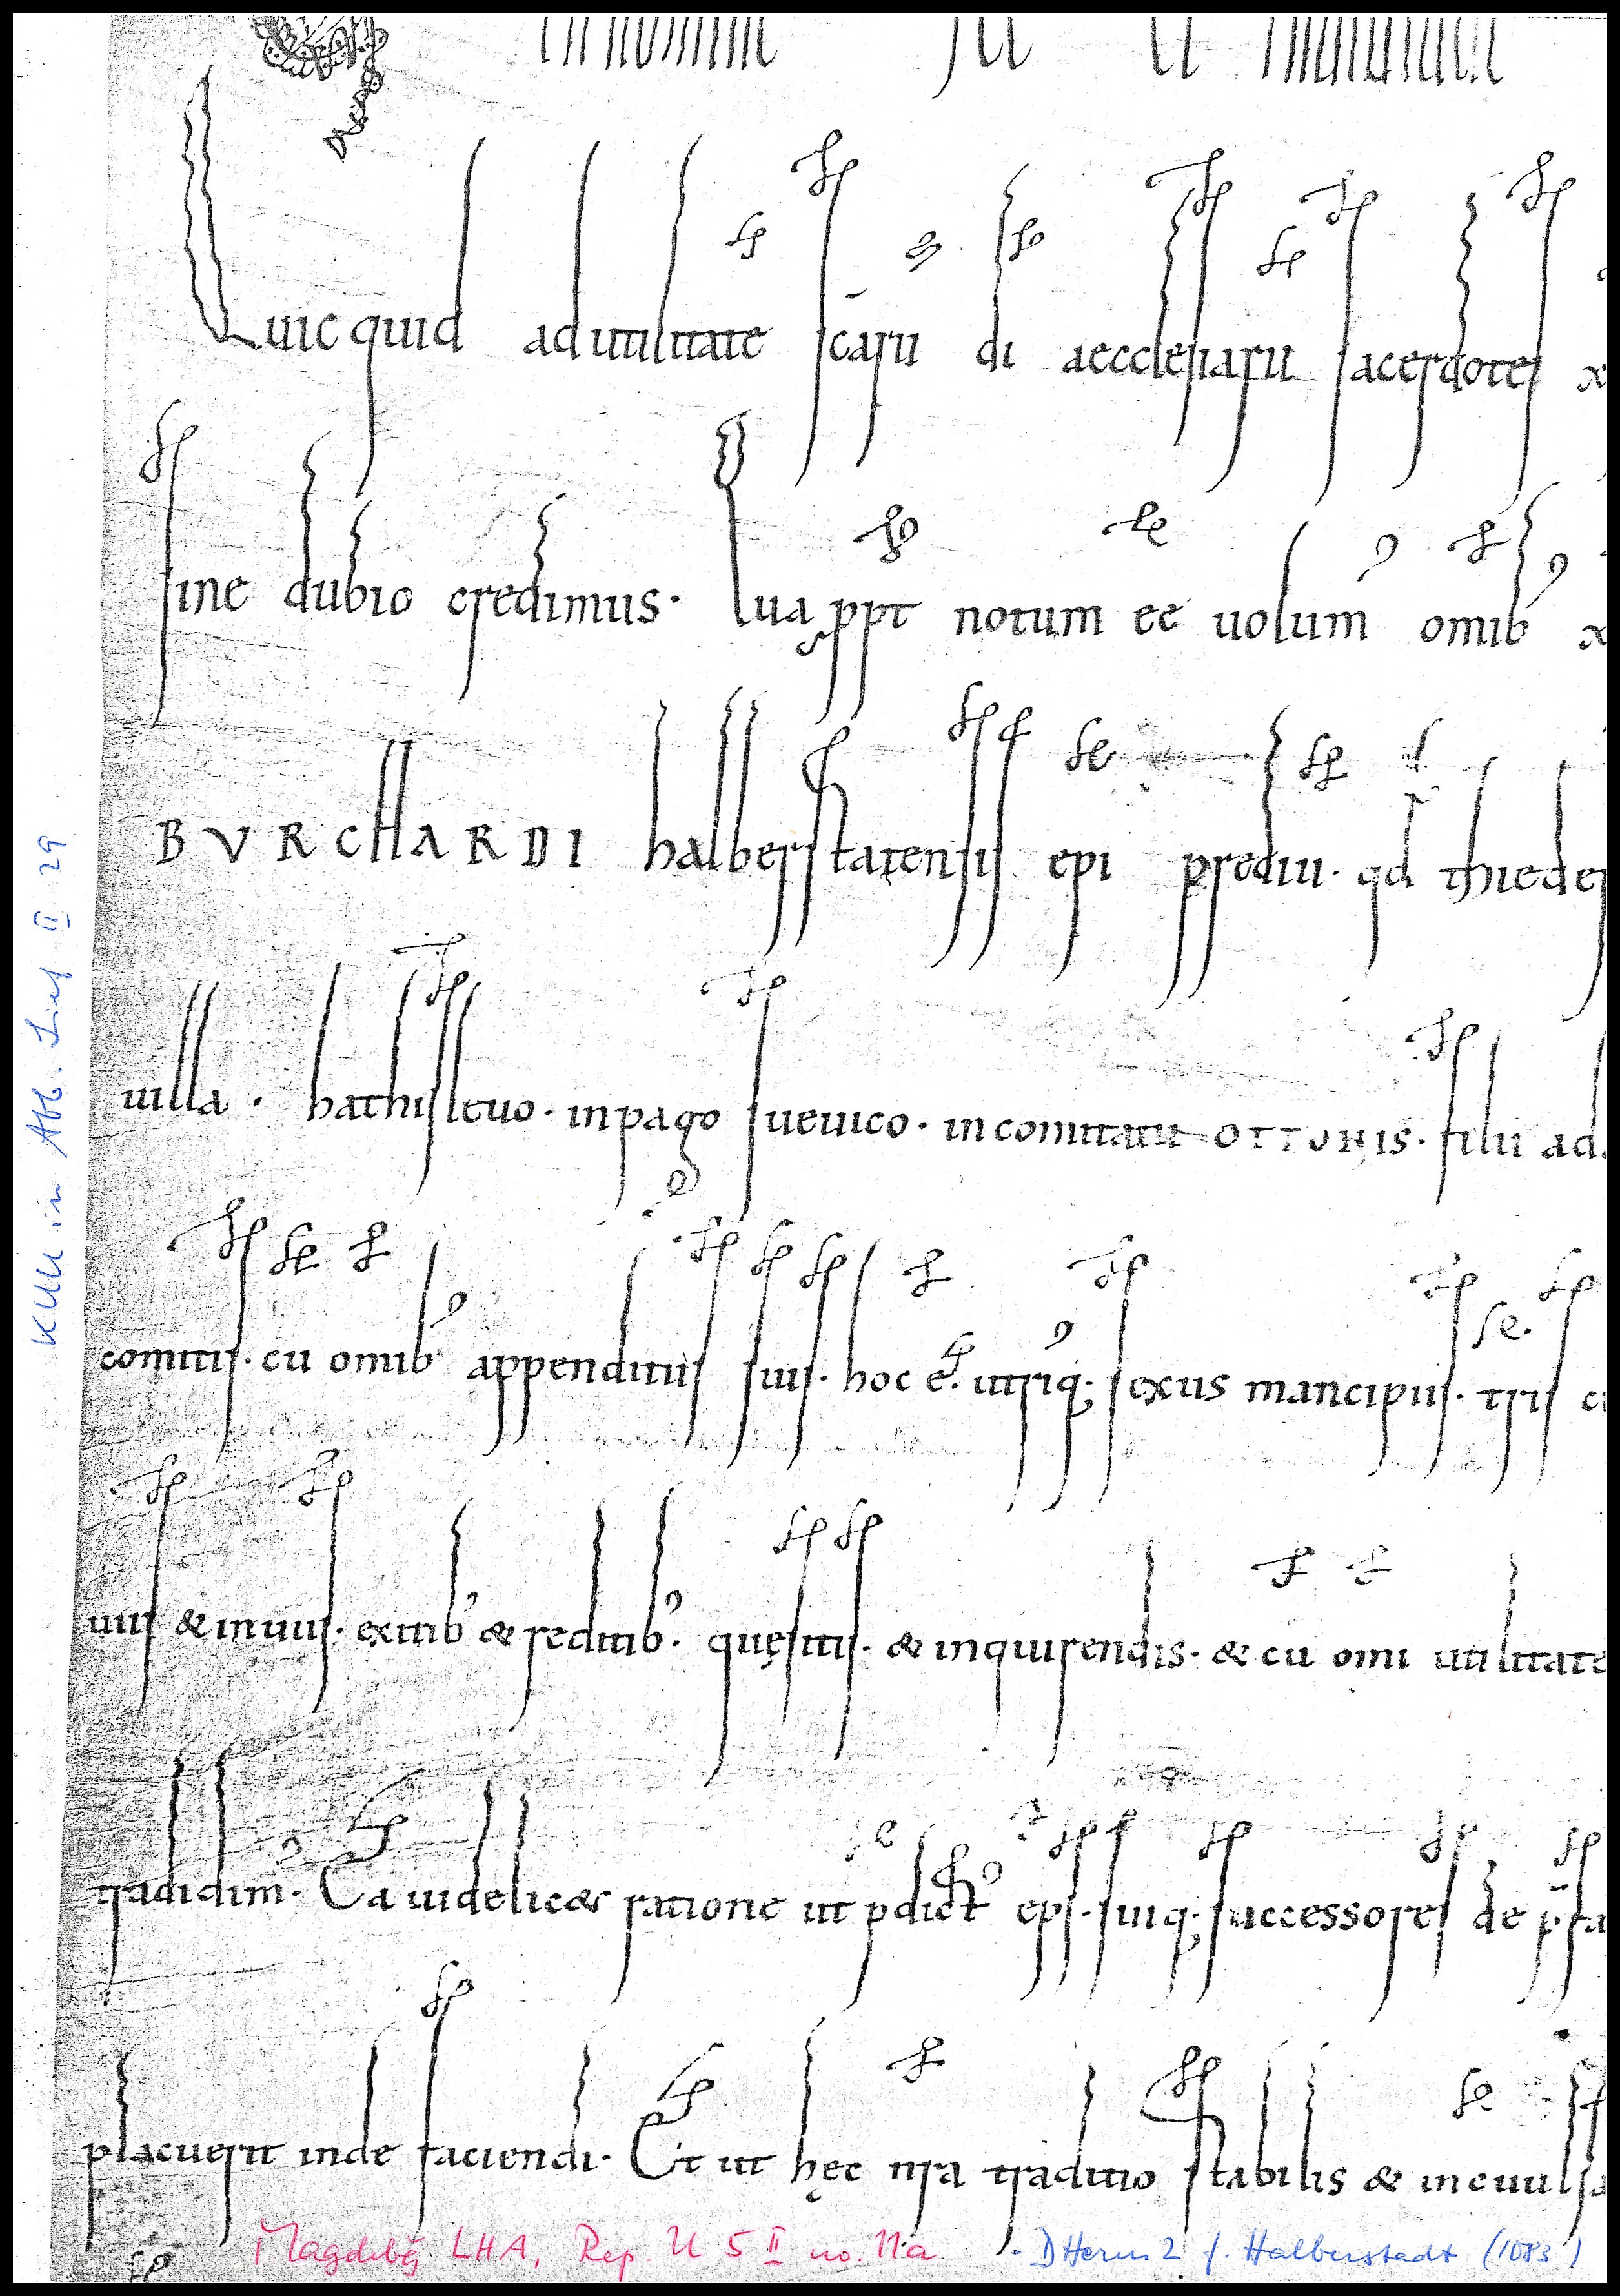 Quicquid ad utilitate scaru di aecclesiaru sacerdotes
sine dubio credimus. Qua ppt notum ee uolum omib
BVRCHARDI halberstatensis epi prediu. qd thieder
uilla. hathisleuo. in pago sueuico. in comitatu OTTONIS. filii ad
comitis. cu omib appenditiis suis. hoc e. utriq; sexus mancipiis. tris
uiis & inuiis. exitib & reditib. quęsitis. & inquirendis. & cu omi utilitate
tradidim. Ea uidelicet ratione ut pdict eps. suiq; successores de
placuerit inde faciendi. Et ut hęc nra traditio stabilis & inconuulsa
Magdebg LHA, Rep U 5 II no. 11a . DHerm 2 f. Halberstadt (1083)
KUU in Abb. Lief II 29